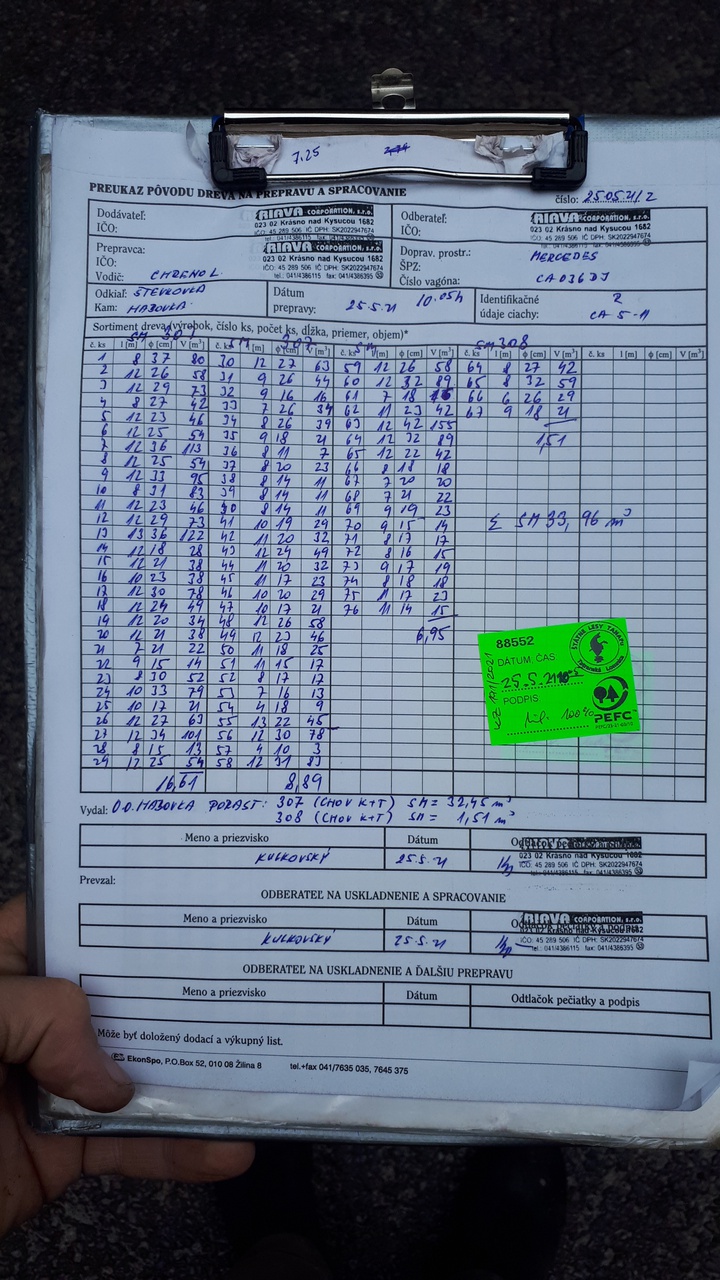 7.25
PREUKAZ PÔVODU DREVA NA PREPRAVU A SPRACOVANIE
číslo: 25.05.21/2
Dodávateľ:
IČO:
RIAVA CORPORATION, s.r.o.
023 02 Krásno nad Kysucou 1682
IČO: 45 289 506 IČ DPH: SK2022947674
tel.: 041/4386115 fax: 041/4386395
Odberateľ:
IČO:
RIAVA CORPORATION, s.r.o.
023 02 Krásno nad Kysucou 1682
IČO: 45 289 506 IČ DPH: SK2022947674
Prepravca:
IČO:
Vodič:
RIAVA CORPORATION, s.r.o.
023 02 Krásno nad Kysucou 1682
IČO: 45 289 506 IČ DPH: SK2022947674
tel.: 041/4386115 fax: 041/4386395
Doprav. prostr.: MERCEDES
ŠPZ:
Číslo vagóna: CA036DJ
Odkiaľ: ŠTEVKOVKA
Kam: HAJOVKA
Dátum
prepravy: 25.5.21 10.05h
Identifikačné 2
údaje ciachy: CA 5-11
Sortiment dreva (výrobok, číslo ks, počet ks, dĺžka, priemer, objem)*
SM 307 SM 307 SM SM308
č. ks l [m] ϕ [cm] V [m³] č. ks l [m] ϕ [cm] V [m³] č. ks l [m] ϕ [cm] V [m³] č. ks l [m] ϕ [cm] V [m³] č. ks l [m] ϕ [cm] V [m³]
1 8 37 80 30 12 27 63 59 12 26 58 64 8 27 42
2 12 26 58 31 9 26 44 60 12 32 89 65 8 32 59
3 12 29 73 32 9 16 16 61 7 18 66 6 26 29
4 8 27 42 33 7 26 34 62 11 23 42 67 9 18 21
5 12 23 46 34 8 26 39 63 12 42 155
6 12 25 54 35 9 18 21 64 12 32 89 1,51
7 12 36 113 36 8 11 7 65 12 22 42
8 12 25 54 37 8 20 23 66 8 18 18
9 12 33 95 38 8 14 11 67 7 20 20
10 8 31 83 39 8 14 11 68 7 21 22
11 12 23 46 40 8 14 11 69 9 19 23
12 12 29 73 41 10 19 29 70 9 15 14 Σ SM 33,96 m³
13 13 36 122 42 11 20 32 71 8 17 17
14 12 18 28 43 12 24 49 72 8 16 15
15 12 21 38 44 11 20 32 73 9 17 19
16 10 23 38 45 11 17 23 74 8 18 18
17 12 30 78 46 10 20 29 75 11 17 23
18 12 24 49 47 10 17 21 76 11 14 15
19 12 20 34 48 12 26 58
20 12 21 38 49 12 23 46 6,95
21 7 21 22 50 11 18 25
22 9 15 14 51 11 15 17
23 8 30 52 52 8 17 17
24 10 33 79 53 7 16 13
25 10 17 21 54 4 18 9
26 12 27 63 55 13 22 45
27 12 34 101 56 12 30 78
28 8 15 13 57 4 10 3
29 12 25 54 58 12 31 83
16,61 8,89
88552
ŠTÁTNE LESY TANAPU
Tatranská Lomnica
DÁTUM, ČAS
25.5.21
PODPIS
PEFC
Vydal: O.O. HAJOVKA PORAST: 307 (CHOV K+T) SM = 32,45 m³
308 (CHOV K+T) SM = 1,51 m³
Meno a priezvisko Dátum
KULKOVSKÝ 25.5.21
023 02 Krásno nad Kysucou 1682
IČO: 45 289 506 IČ DPH: SK2022947674
tel.: 041/4386115 fax: 041/4386395
Prevzal:
ODBERATEĽ NA USKLADNENIE A SPRACOVANIE
Meno a priezvisko Dátum
KULKOVSKÝ 25.5.21
RIAVA CORPORATION, s.r.o.
023 02 Krásno nad Kysucou 1682
IČO: 45 289 506 IČ DPH: SK2022947674
tel.: 041/4386115 fax: 041/4386395
ODBERATEĽ NA USKLADNENIE A ĎALŠIU PREPRAVU
Meno a priezvisko Dátum Odtlačok pečiatky a podpis
Môže byť doložený dodací a výkupný list.
EkonSpo, P.O.Box 52, 010 08 Žilina 8 tel.+fax 041/7635 035, 7645 375